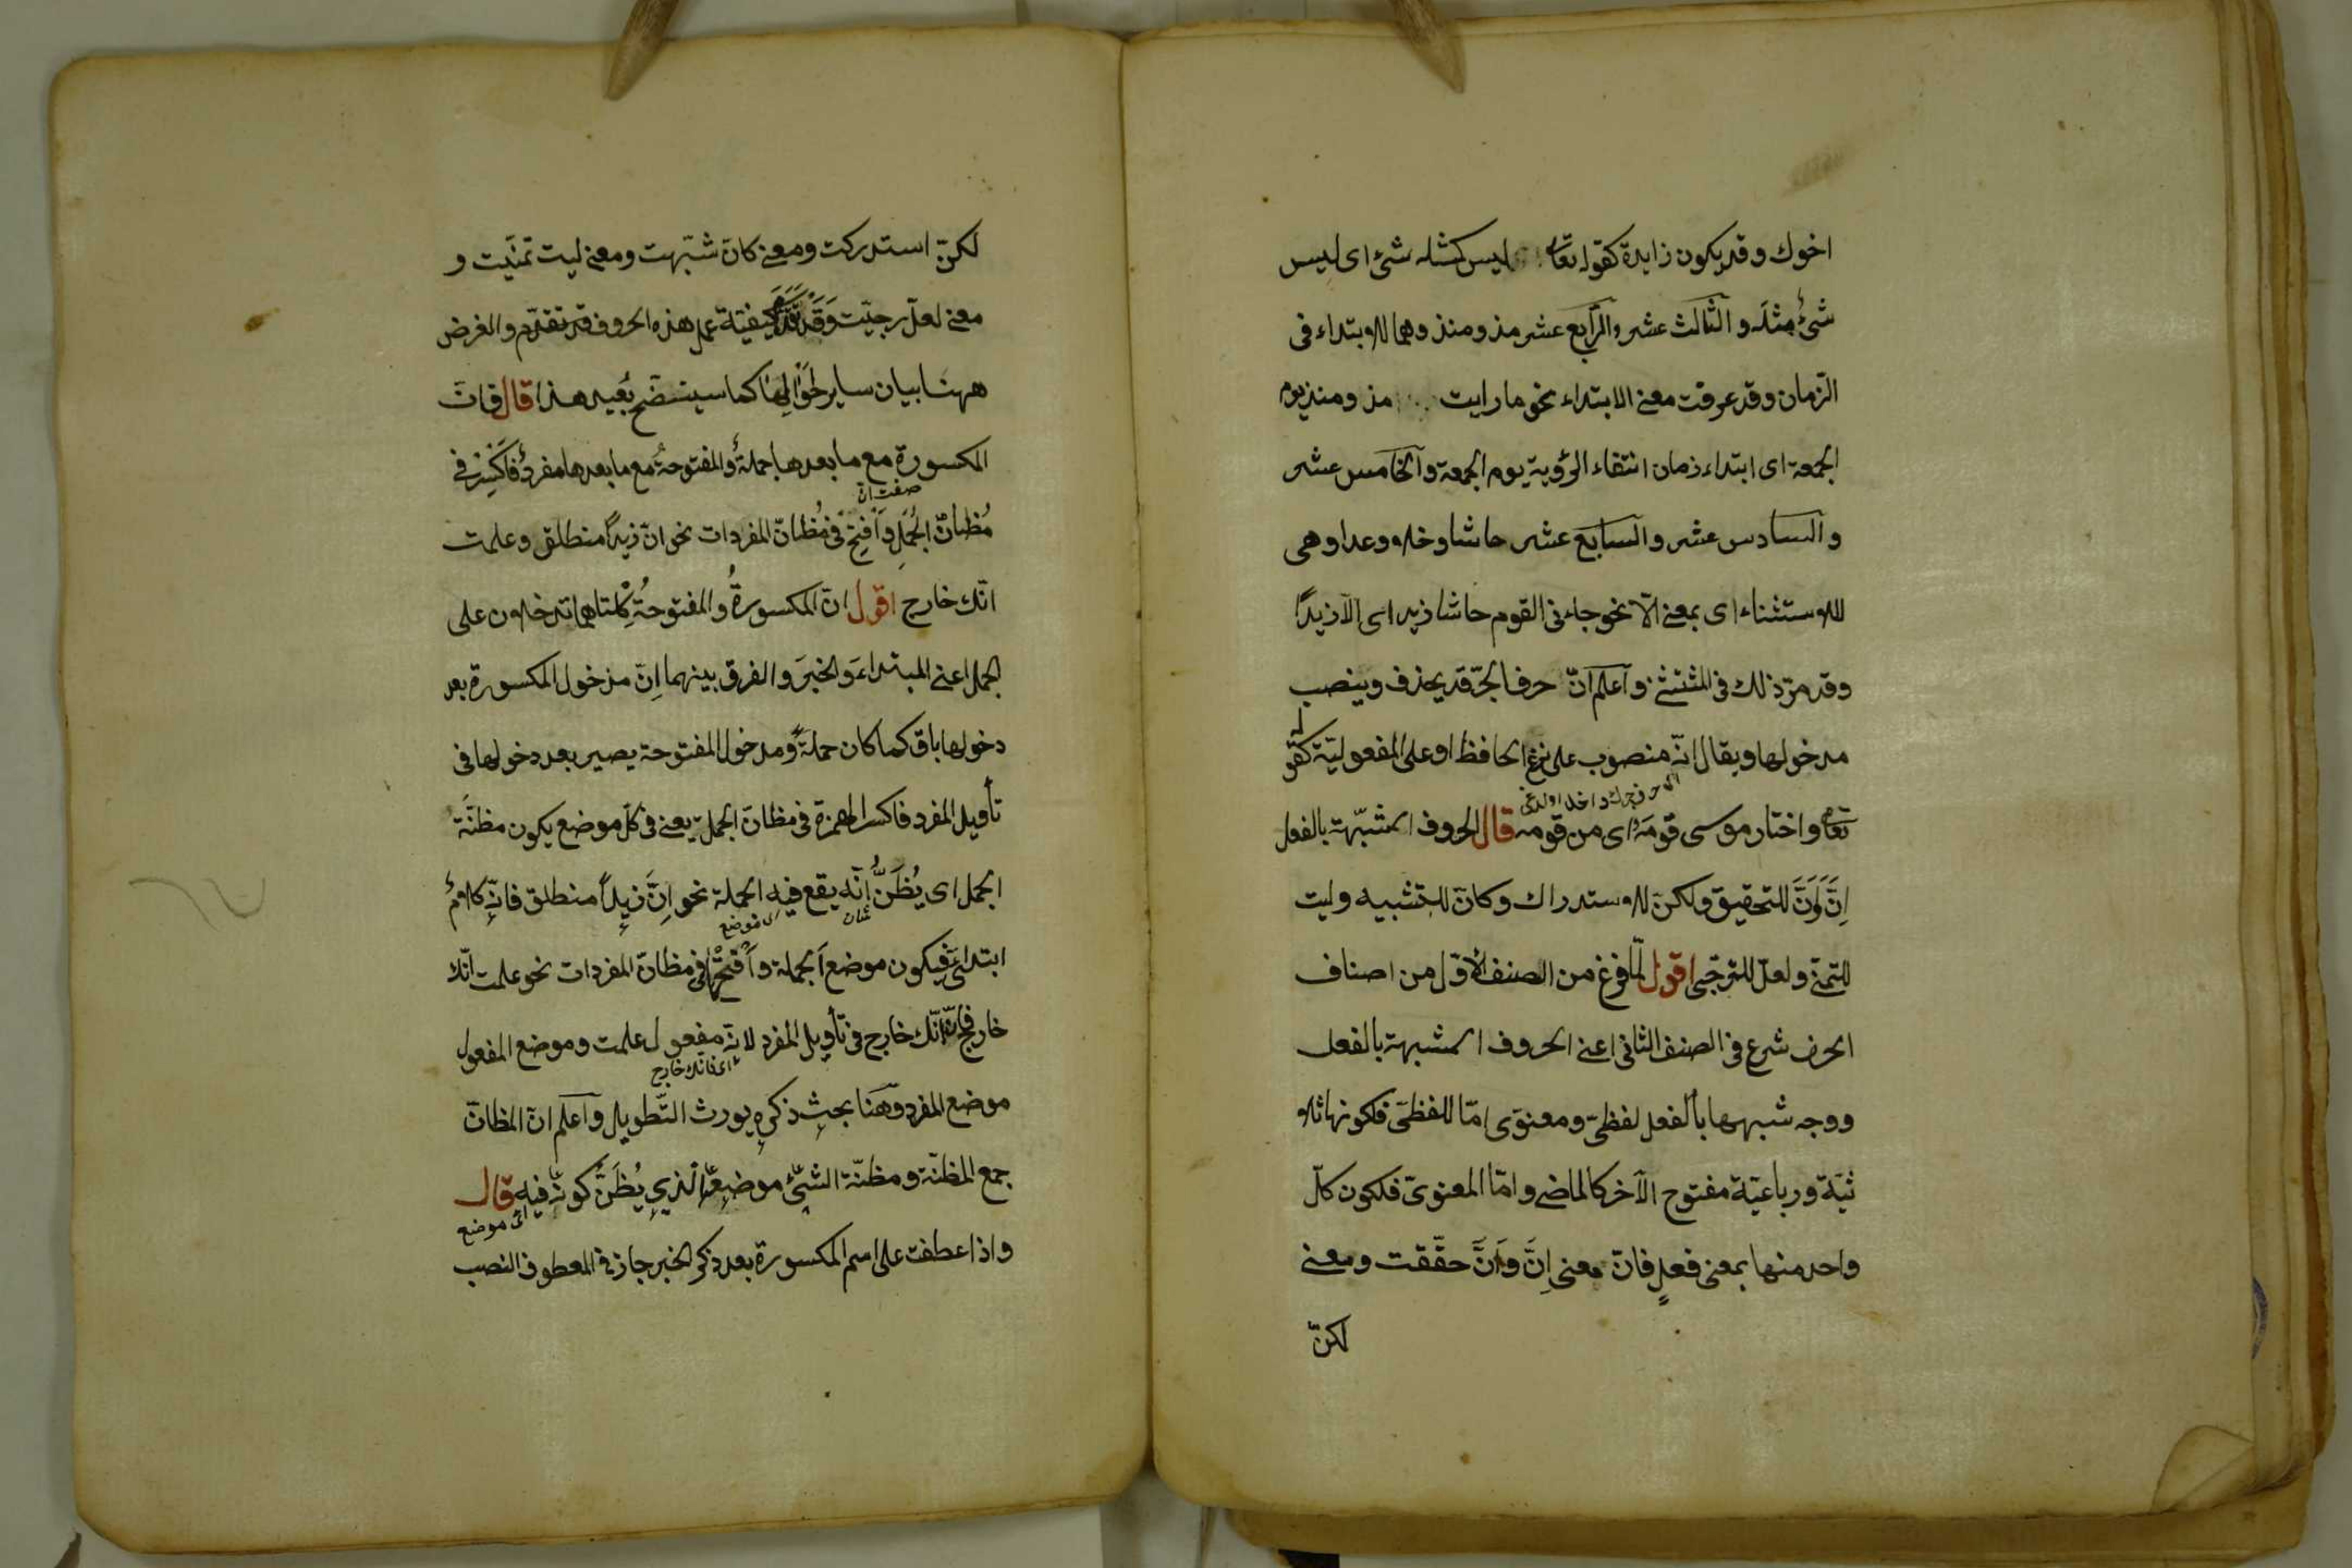 اخوك وقد يكون زايدة كقوله تعا ليس كمثله شئ اى ليس
شئ مثله والثالث عشر والرابع عشر مذ ومنذ وهما للابتداء فى
الزمان وقد عرفت معنى الابتداء نحو ما رايت مذ ومنذ يوم
الجمعة اى ابتداء زمان انتفاء الرؤية يوم الجمعة والخامس عشر
والسادس عشر والسابع عشر حاشا وخلا وعدا وهى
للاستثناء اى بمعنى الّا نحو جاءنى القوم حاشا زيد اى الّا زيدًا
وقد مرّ ذلك فى المثتثنى واعلم انّ حرف الجرّ قد يحذف وينصب
مدخولها ويقال انّه منصوب على نزع الحافظ او على المفعوليّة كقوله
تعا واختار موسى قومَه اى من قومه قال الحروف المشبّهة بالفعل
اِنَّ وَاَنَّ للتحقيق ولكنّ للاستدراك وكانّ للتشبيه وليت
للتمنّى ولعلّ للترجّى اقول لمّا فرغ من الصنف الاوّل من اصناف
الحرف شرع فى الصنف الثانى اعنى الحروف المشبهة بالفعل
ووجه شبهها بالفعل لفظىّ ومعنوى امّا اللفظىّ فلكونها ثلا
ثيّة ورباعيّة مفتوح الآخر كالماضى وامّا المعنوىّ فلكون كلّ
واحد منها بمعنى فعلٍ فانّ معنى اِنَّ وَاَنَّ حقّقت ومعنى
لكنّ
لكنّ استدركت ومعنى كانّ شبّهت ومعنى ليت تمنّيت و
معنى لعلّ ترجيّت كيفيّة عمل هذه الحروف قد تقدّم والغرض
ههنا بيان ساير احوالها كما سيتضح بُعيد هذا قال فانّ
المكسورة مع ما بعدها جملةٌ والمفتوحةُ مع ما بعدها مفردٌ فاكسر فى
صفت انّ
مُظانّ الجُمَلِ وافتح فى مُظانّ المفردات نحو انّ زيدًا منطلق وعلمت
انّك خارج اقول انّ المكسورةُ والمفتوحةُ كِلتاهما تدخلان على
الجمل اعنى المبتداءَ والخبرَ والفرق بينهما اِنّ مدخول المكسورة بعد
دخولها باق كما كان جملةً ومدخول المفتوحة يصير بعد دخولها فى
تأويل المفرد فاكسر الهمزة فى مظانّ الجمل يعنى فى كلّ موضع يكون مظنّةَ
الجمل اى يُظَنُّ انّه يقع فيه الجملة نحو اِنَّ زيدًا منطلق فانّه كلامٌ
اى موضع
ابتدائىّ فيكون موضع الجملة وافتحها فى مظانّ المفردات نحو علمت انّك
خارج فانّ انّك خارج فى تأويل المفرد لانّه مفعول علمت وموضع المفعول
اى انّك خارج
موضع المفرد وههنا بحث ذكره يورث التّطويل واعلم انّ المظانّ
جمع المظنّة ومظنّة الشئ موضعه الّذى يُظَنُّ كونه فيه قال
اى موضع
واذا عطفت على اسم المكسورة بعد ذكر الخبر جاز فى المعطوف النصب